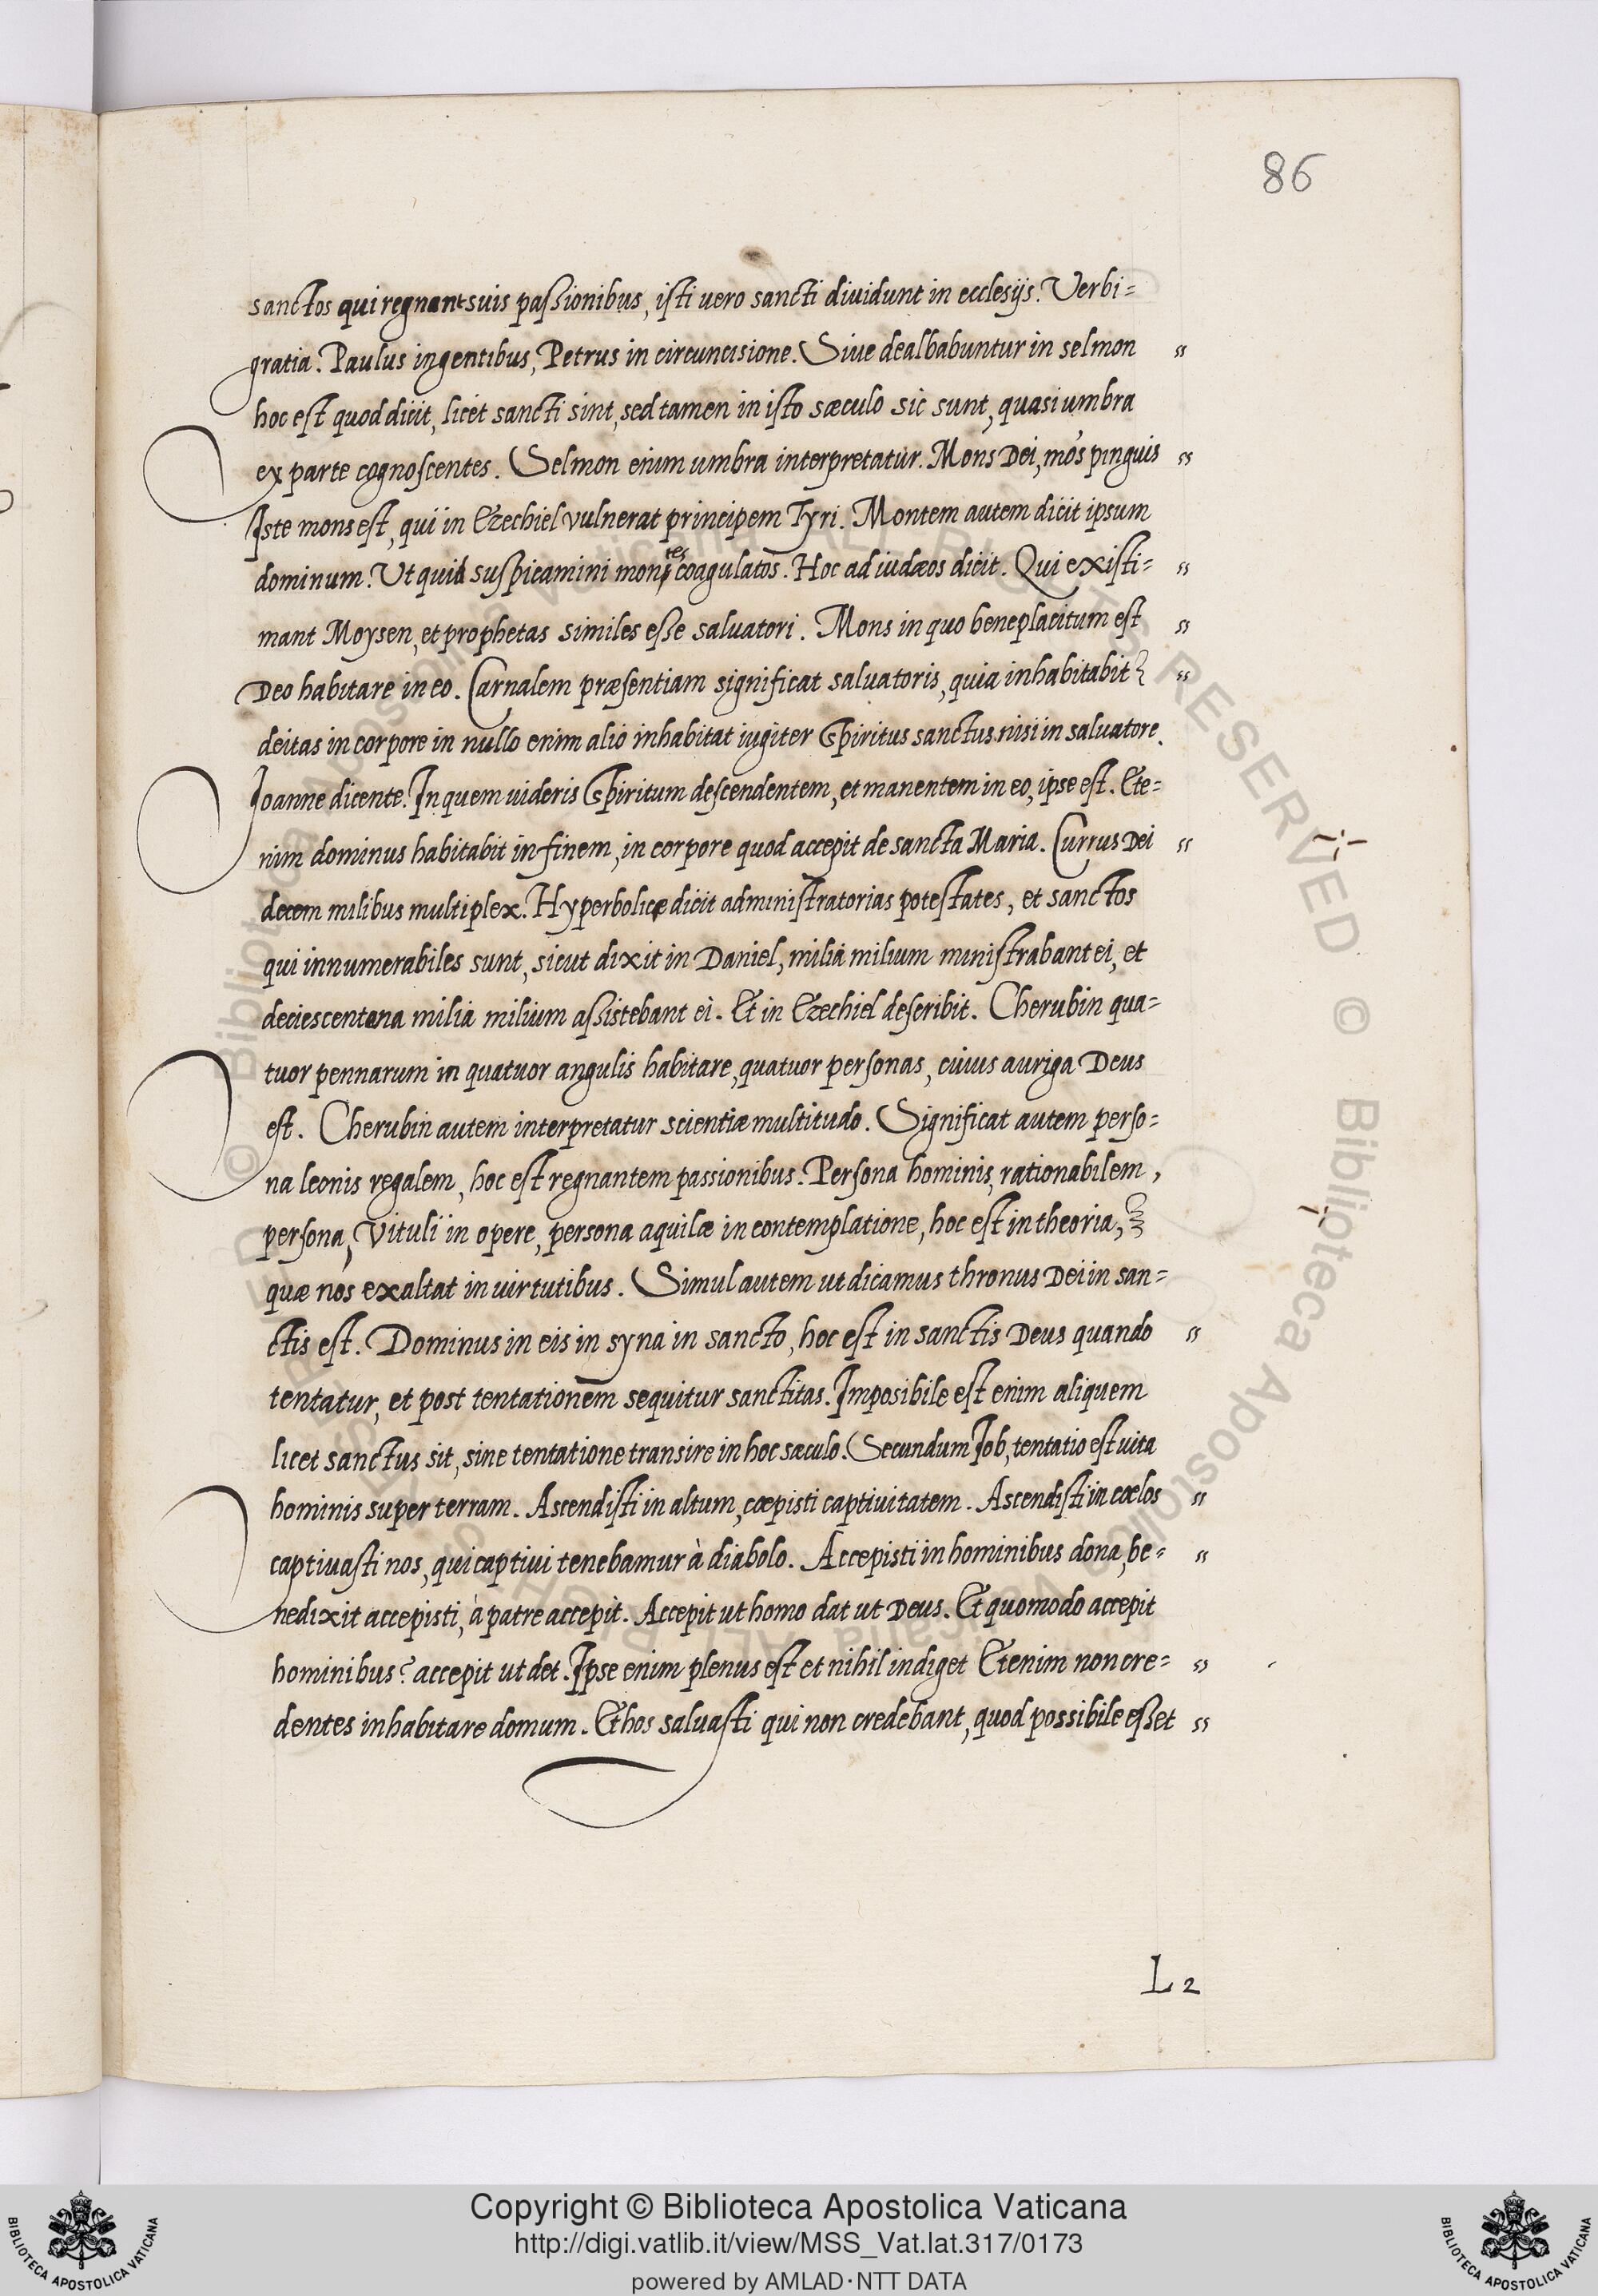 86
sanctos qui regnant suis passionibus, isti uero sancti diuidunt in ecclesijs. Verbi=
gratia. Paulus in gentibus, Petrus in circuncisione. Siue dealbabuntur in selmon "
hoc est quod dicit, licet sancti sint, sed tamen in isto sæculo sic sunt, quasi umbra
ex parte cognoscentes. Selmon enim umbra interpretatur. Mons Dei, mõs pinguis "
Iste mons est, qui in Ezechiel vulnerat principem Tyri. Montem autem dicit ipsum
dominum. Ut quid suspicamini montes coagulatos. Hoc ad iudæos dicit. Qui existi= "
mant Moysen, et prophetas similes esse saluatori. Mons in quo beneplacitum est "
Deo habitare in eo. Carnalem præsentiam significat saluatoris, quia inhabitabit "
deitas in corpore in nullo enim alio inhabitat iugiter Spiritus sanctus nisi in saluatore.
Joanne dicente. In quem uideris Spiritum descendentem, et manentem in eo, ipse est. Ete=
nim dominus habitabit in finem, in corpore quod accepit de sancta Maria. Currus Dei "
decem milibus multiplex. Hyperbolice dicit administratorias potestates, et sanctos
qui innumerabiles sunt, sicut dixit in Daniel, milia milium ministrabant ei, et
deciescentena milia milium assistebant ei. Et in Ezechiel describit. Cherubin qua=
tuor pennarum in quatuor angulis habitare, quatuor personas, cuius auriga Deus
est. Cherubin autem interpretatur scientiæ multitudo. Significat autem perso=
na leonis regalem, hoc est regnantem passionibus. Persona hominis, rationabilem,
persona, Vituli in opere, persona aquilæ in contemplatione, hoc est in theoria,
quæ nos exaltat in uirtutibus. Simul autem ut dicamus thronus Dei in san=
ctis est. Dominus in eis in syna in sancto, hoc est in sanctis Deus quando "
tentatur, et post tentationem sequitur sanctitas. Imposibile est enim aliquem
licet sanctus sit, sine tentatione transire in hoc sæculo. Secundum Job, tentatio est uita
hominis super terram. Ascendisti in altum, cœpisti captiuitatem. Ascendisti in cœlos "
captiuasti nos, qui captiui tenebamur à diabolo. Accepisti in hominibus dona, be= "
nedixit accepisti, à patre accepit. Accepit ut homo dat ut Deus. Et quomodo accepit
hominibus? accepit ut det. Ipse enim plenus est et nihil indiget Etenim non cre= "
dentes inhabitare domum. Et hos saluasti qui non credebant, quod possibile esset "
L 2
© Biblioteca Apostolica Vaticana ALL RIGHTS RESERVED © Biblioteca Apostolica Vaticana ALL RIGHTS RESERVED
BIBLIOTECA APOSTOLICA VATICANA
Copyright © Biblioteca Apostolica Vaticana
http://digi.vatlib.it/view/MSS_Vat.lat.317/0173
powered by AMLAD·NTT DATA
BIBLIOTECA APOSTOLICA VATICANA